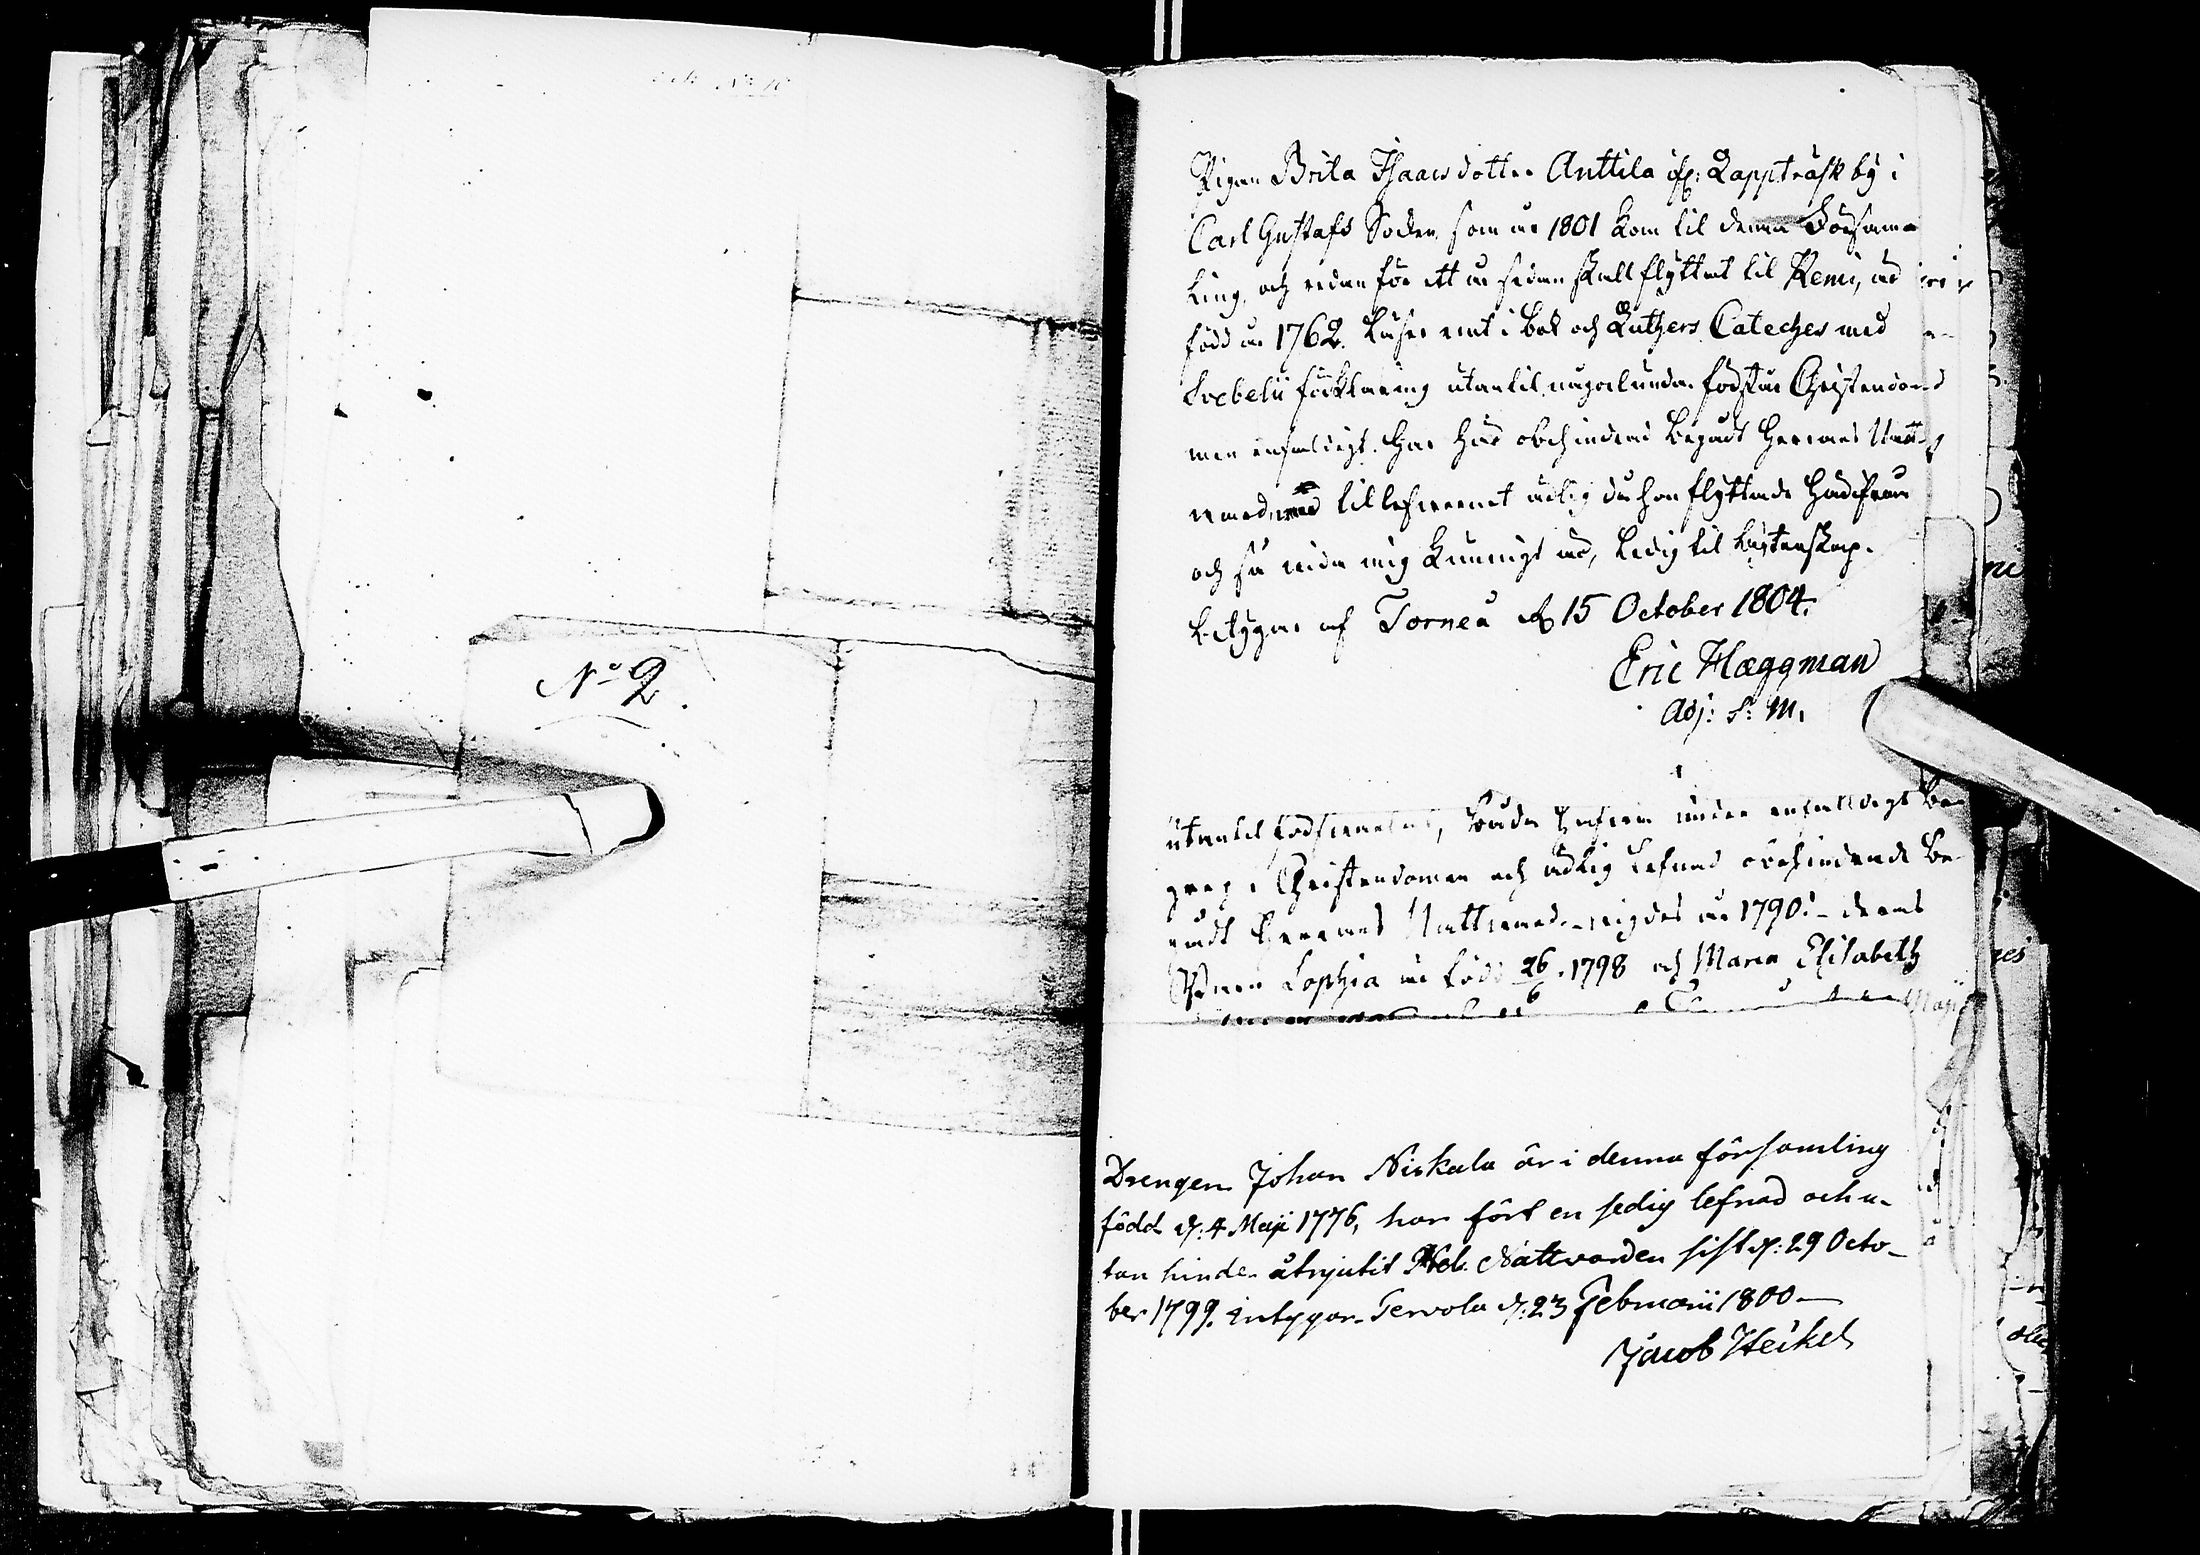 N:o 2.
Pigan Brita Isaacsdotter Anttila ifr: Lappträsk by i
Carl Gustafs Sockn, som år 1801 kom til denna Försam-
ling, och redan för ett år sedan skall flyttat til Kemi, är
född år 1762. Läser rent i bok och Luthers Cateches med
Svebelii förklaring utantil, någorlunda. förstår Christendo-
men enfaldigt. Har här obehindrad begådt Herrans Natt-
vard, til lefwernet ärlig då hon flyttade härifrån
och så vida mig kunnigt är, ledig til Ägtenskap.
betygar af Torneå d. 15 October 1804.
Eric Hæggman
Adj: s: M.
utantil
grep i Christendomen och ärlig lefnad obehindrade be-
gådt Herrans Nattvard år 1790. deras
Sophia är född 26/6 1798 och Maria Elisabeth
Maji
Drengen Johan Niskala är i denna församling
född d: 4 Maji 1776, har fört en sedig lefnad och u-
tan hinder åtnjutit Hel. Nattvarden sist d: 29 Octo-
ber 1799. intygar Tervola d: 23 Februarii 1800
Jacob Heikel